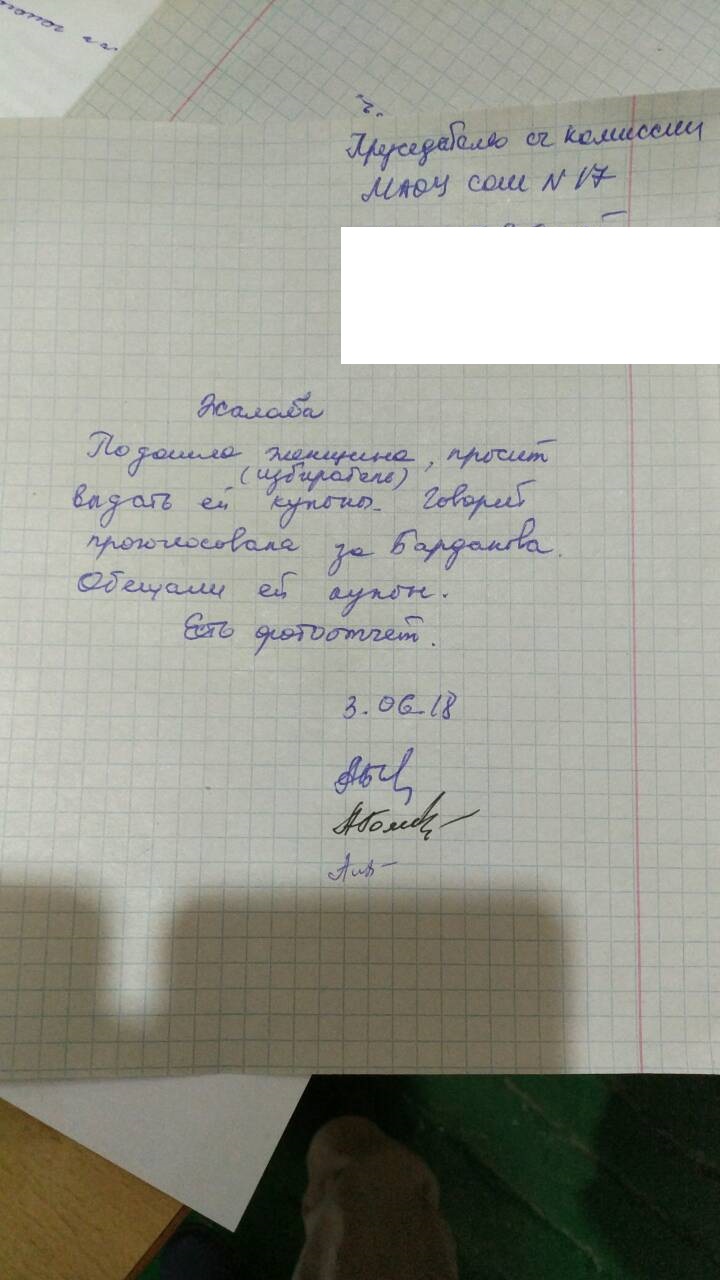 Председателю сч комиссии
МАОУ СОШ N 17
Жалоба
Подошла женщина, просит
(избиратель)
выдать ей купоны. Говорит
проголосовала за Барданова.
Обещали ей купон.
Есть фотоотчет.
3.06.18